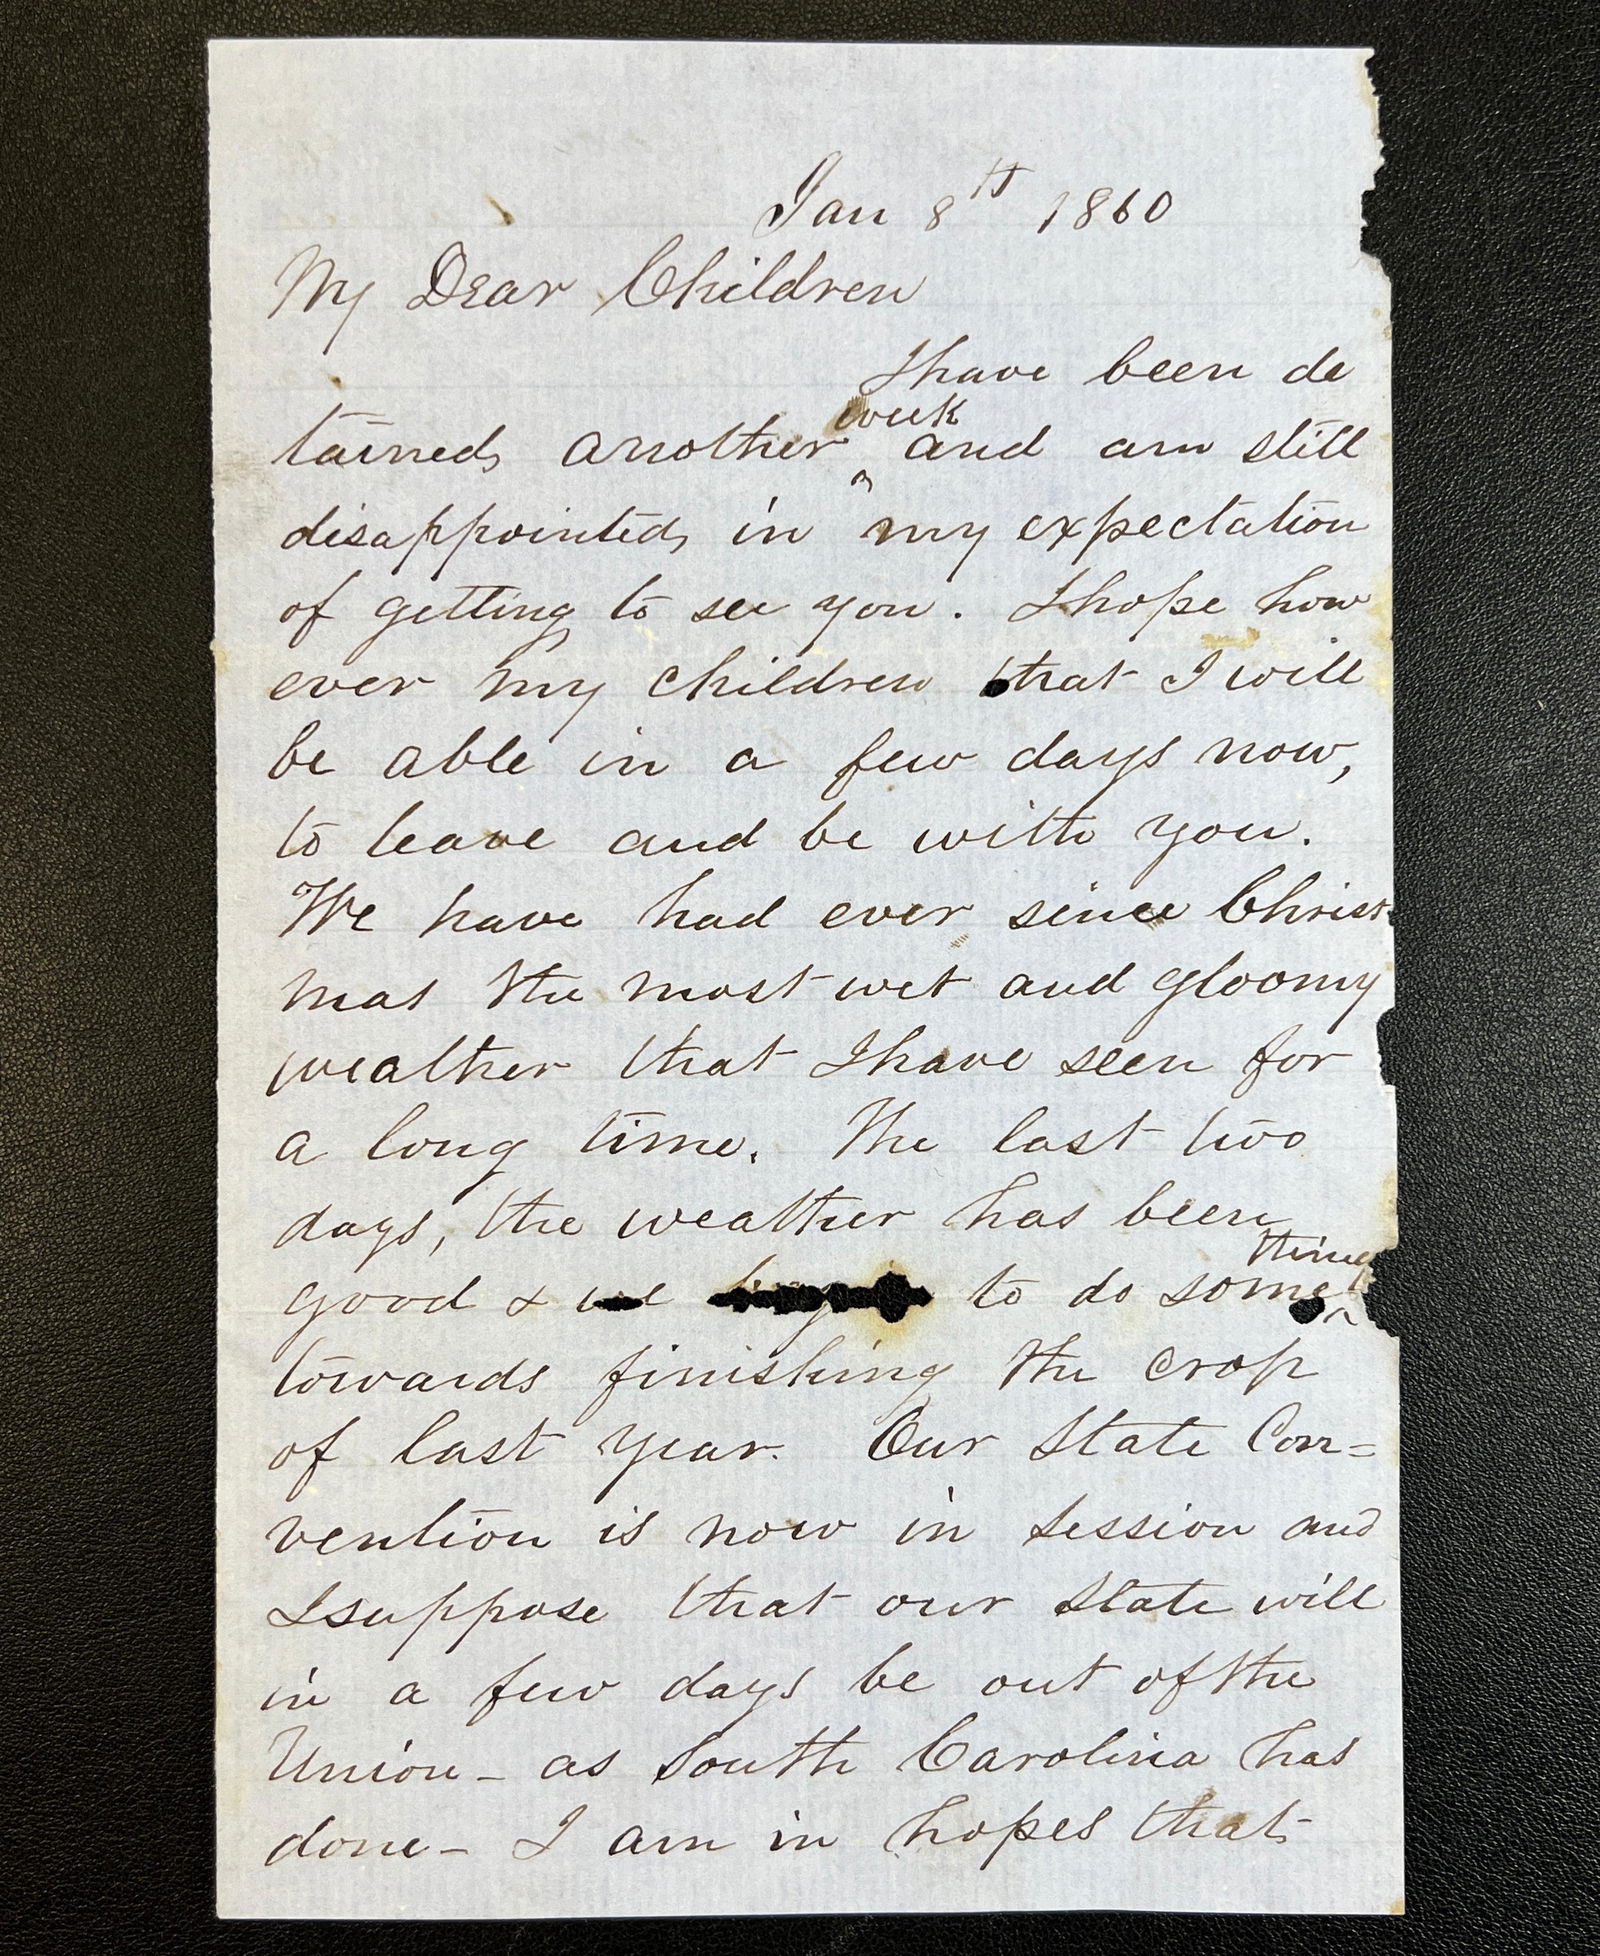 Jan 8th 1860
My Dear Children
I have been de
week
tained another ^ and am still
disappointed in my expectation
of getting to see you. I hope how
ever my children that I will
be able in a few days now,
to leave and be with you.
We have had ever since Christ
mas the most wet and gloomy
weather that I have seen for
a long time. The last two
days, the weather has been
thing
good & we to do some ^
towards finishing the crop
of last year. Our State Con=
vention is now in session and
I suppose that our State will
in a few days be out of the
Union - as South Carolina has
done - I am in hopes that